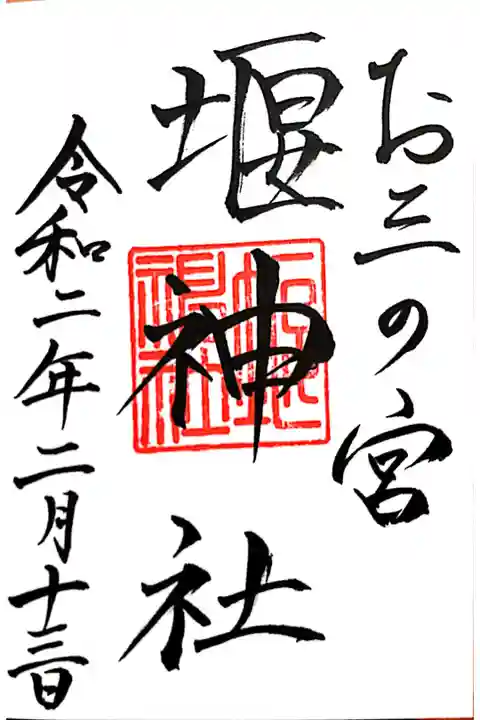 お三の宮
堰神社
令和二年二月十三日